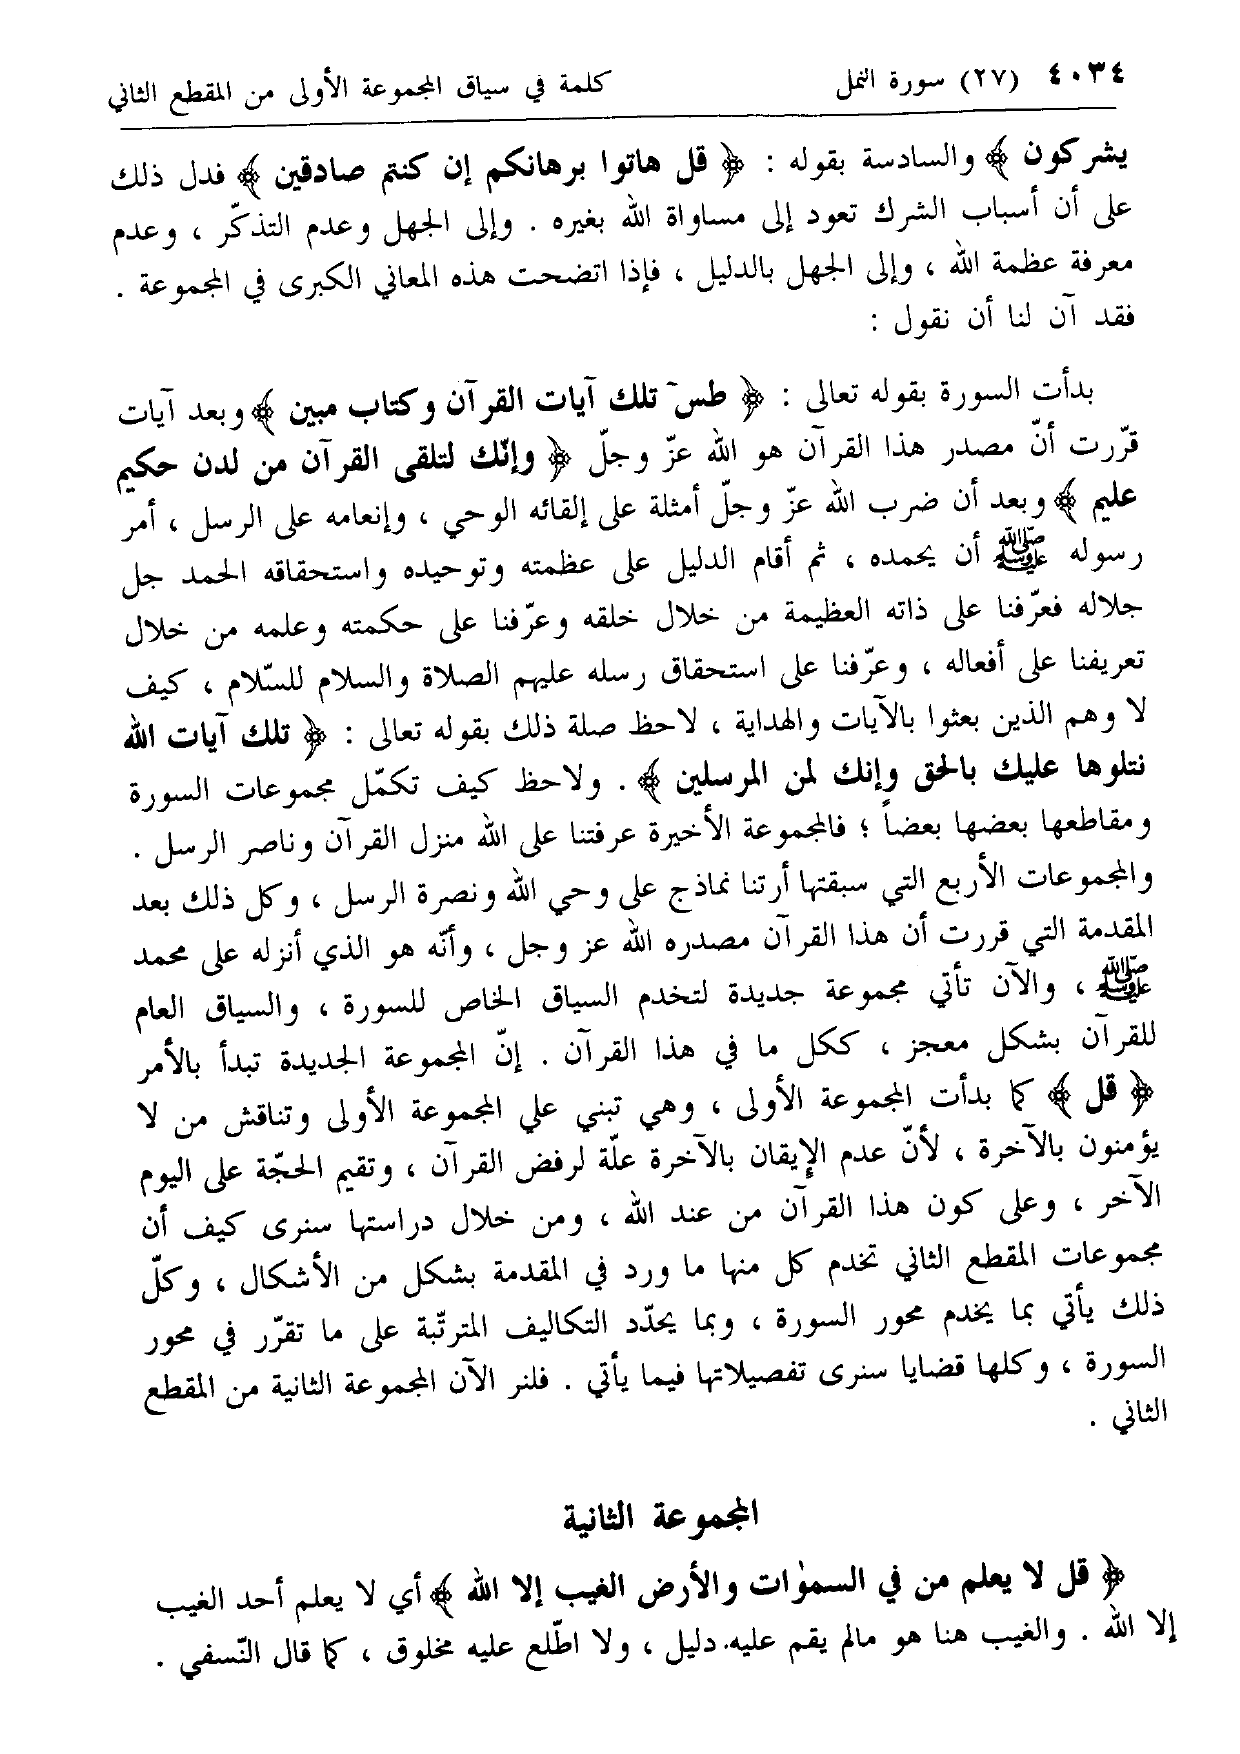 ٤٠٣٤ (٢٧) سورة النمل كلمة في سياق المجموعة الأولى من المقطع الثاني
يشركون ﴾ والسادسة بقوله : ﴿ قل هاتوا برهانكم إن كنتم صادقين ﴾ فدل ذلك
على أن أسباب الشرك تعود إلى مساواة الله بغيره . وإلى الجهل وعدم التذكّر ، وعدم
معرفة عظمة الله ، وإلى الجهل بالدليل ، فإذا اتضحت هذه المعاني الكبرى في المجموعة .
فقد آن لنا أن نقول :
بدأت السورة بقوله تعالى : ﴿ طسٓ تلك آيات القرآن وكتاب مبين ﴾ وبعد آيات
قرّرت أنّ مصدر هذا القرآن هو الله عزّ وجلّ ﴿ وإنّك لتلقى القرآن من لدن حكيم
عليم ﴾ وبعد أن ضرب الله عزّ وجلّ أمثلة على إلقائه الوحي ، وإنعامه على الرسل ، أمر
رسوله ﷺ أن يحمده ، ثم أقام الدليل على عظمته وتوحيده واستحقاقه الحمد جل
جلاله فعرّفنا على ذاته العظيمة من خلال خلقه وعرّفنا على حكمته وعلمه من خلال
تعريفنا على أفعاله ، وعرّفنا على استحقاق رسله عليهم الصلاة والسلام للسّلام ، كيف
لا وهم الذين بعثوا بالآيات والهداية ، لاحظ صلة ذلك بقوله تعالى : ﴿ تلك آيات الله
نتلوها عليك بالحق وإنك لمن المرسلين ﴾ . ولاحظ كيف تكمّل مجموعات السورة
ومقاطعها بعضها بعضاً ؛ فالمجموعة الأخيرة عرفتنا على الله منزل القرآن وناصر الرسل .
والمجموعات الأربع التي سبقتها أرتنا نماذج على وحي الله ونصرة الرسل ، وكل ذلك بعد
المقدمة التي قررت أن هذا القرآن مصدره الله عز وجل ، وأنّه هو الذي أنزله على محمد
ﷺ ، والآن تأتي مجموعة جديدة لتخدم السياق الخاص للسورة ، والسياق العام
للقرآن بشكل معجز ، ككل ما في هذا القرآن . إنّ المجموعة الجديدة تبدأ بالأمر
﴿ قل ﴾ كما بدأت المجموعة الأولى ، وهي تبني علي المجموعة الأولى وتناقش من لا
يؤمنون بالآخرة ، لأنّ عدم الإيقان بالآخرة علّة لرفض القرآن ، وتقيم الحجّة على اليوم
الآخر ، وعلى كون هذا القرآن من عند الله ، ومن خلال دراستها سنرى كيف أن
مجموعات المقطع الثاني تخدم كل منها ما ورد في المقدمة بشكل من الأشكال ، وكلّ
ذلك يأتي بما يخدم محور السورة ، وبما يحدّد التكاليف المترتّبة على ما تقرّر في محور
السورة ، وكلها قضايا سنرى تفصيلاتها فيما يأتي . فلنر الآن المجموعة الثانية من المقطع
الثاني .
المجموعة الثانية
﴿ قل لا يعلم من في السمٰوات والأرض الغيب إلا الله ﴾ أي لا يعلم أحد الغيب
إلا الله . والغيب هنا هو مالم يقم عليه. دليل ، ولا اطّلع عليه مخلوق ، كما قال النّسفي .